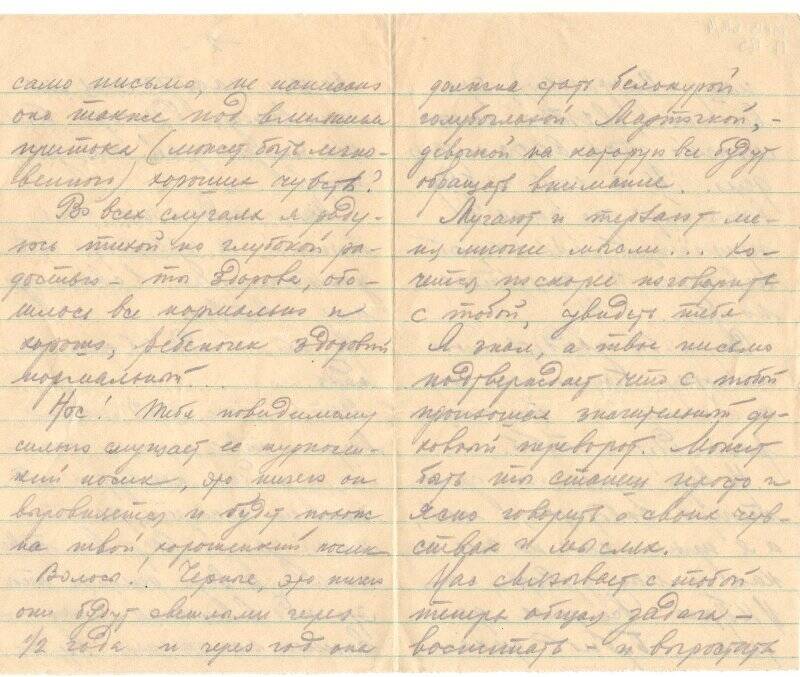 само письмо, не написано
оно также под влиянием
притока (может быть мгно-
венного) хороших чувств?
Во всех случаях я раду-
юсь тихой но глубокой ра-
достью – ты здорова, обо-
шлось все нормально и
хорошо, ребеночек здоровый
нормальный.
Нос! Тебя повидимому
сильно смущает ее курносень-
кий носик, это ничего он
выровняется и будет похож
на твой хорошенький носик
Волосы! Черные, это ничего
они будут светлыми через
1/2 года и через год она
должна стать белокурой
голубоглазой Мартышкой, –
девочкой на которую все будут
обращать внимание.
Пугают и терзают ме-
ня многие мысли... Хо-
чется поскорее поговорить
с тобой, увидеть тебя
Я знал, а твое письмо
подтверждает что с тобой
произошел значительный ду-
ховный переворот. Может
быть ты станешь просто и
ясно говорить о своих чув-
ствах и мыслях.
Нас связывает с тобой
теперь общая задача –
воспитать – и вырастить